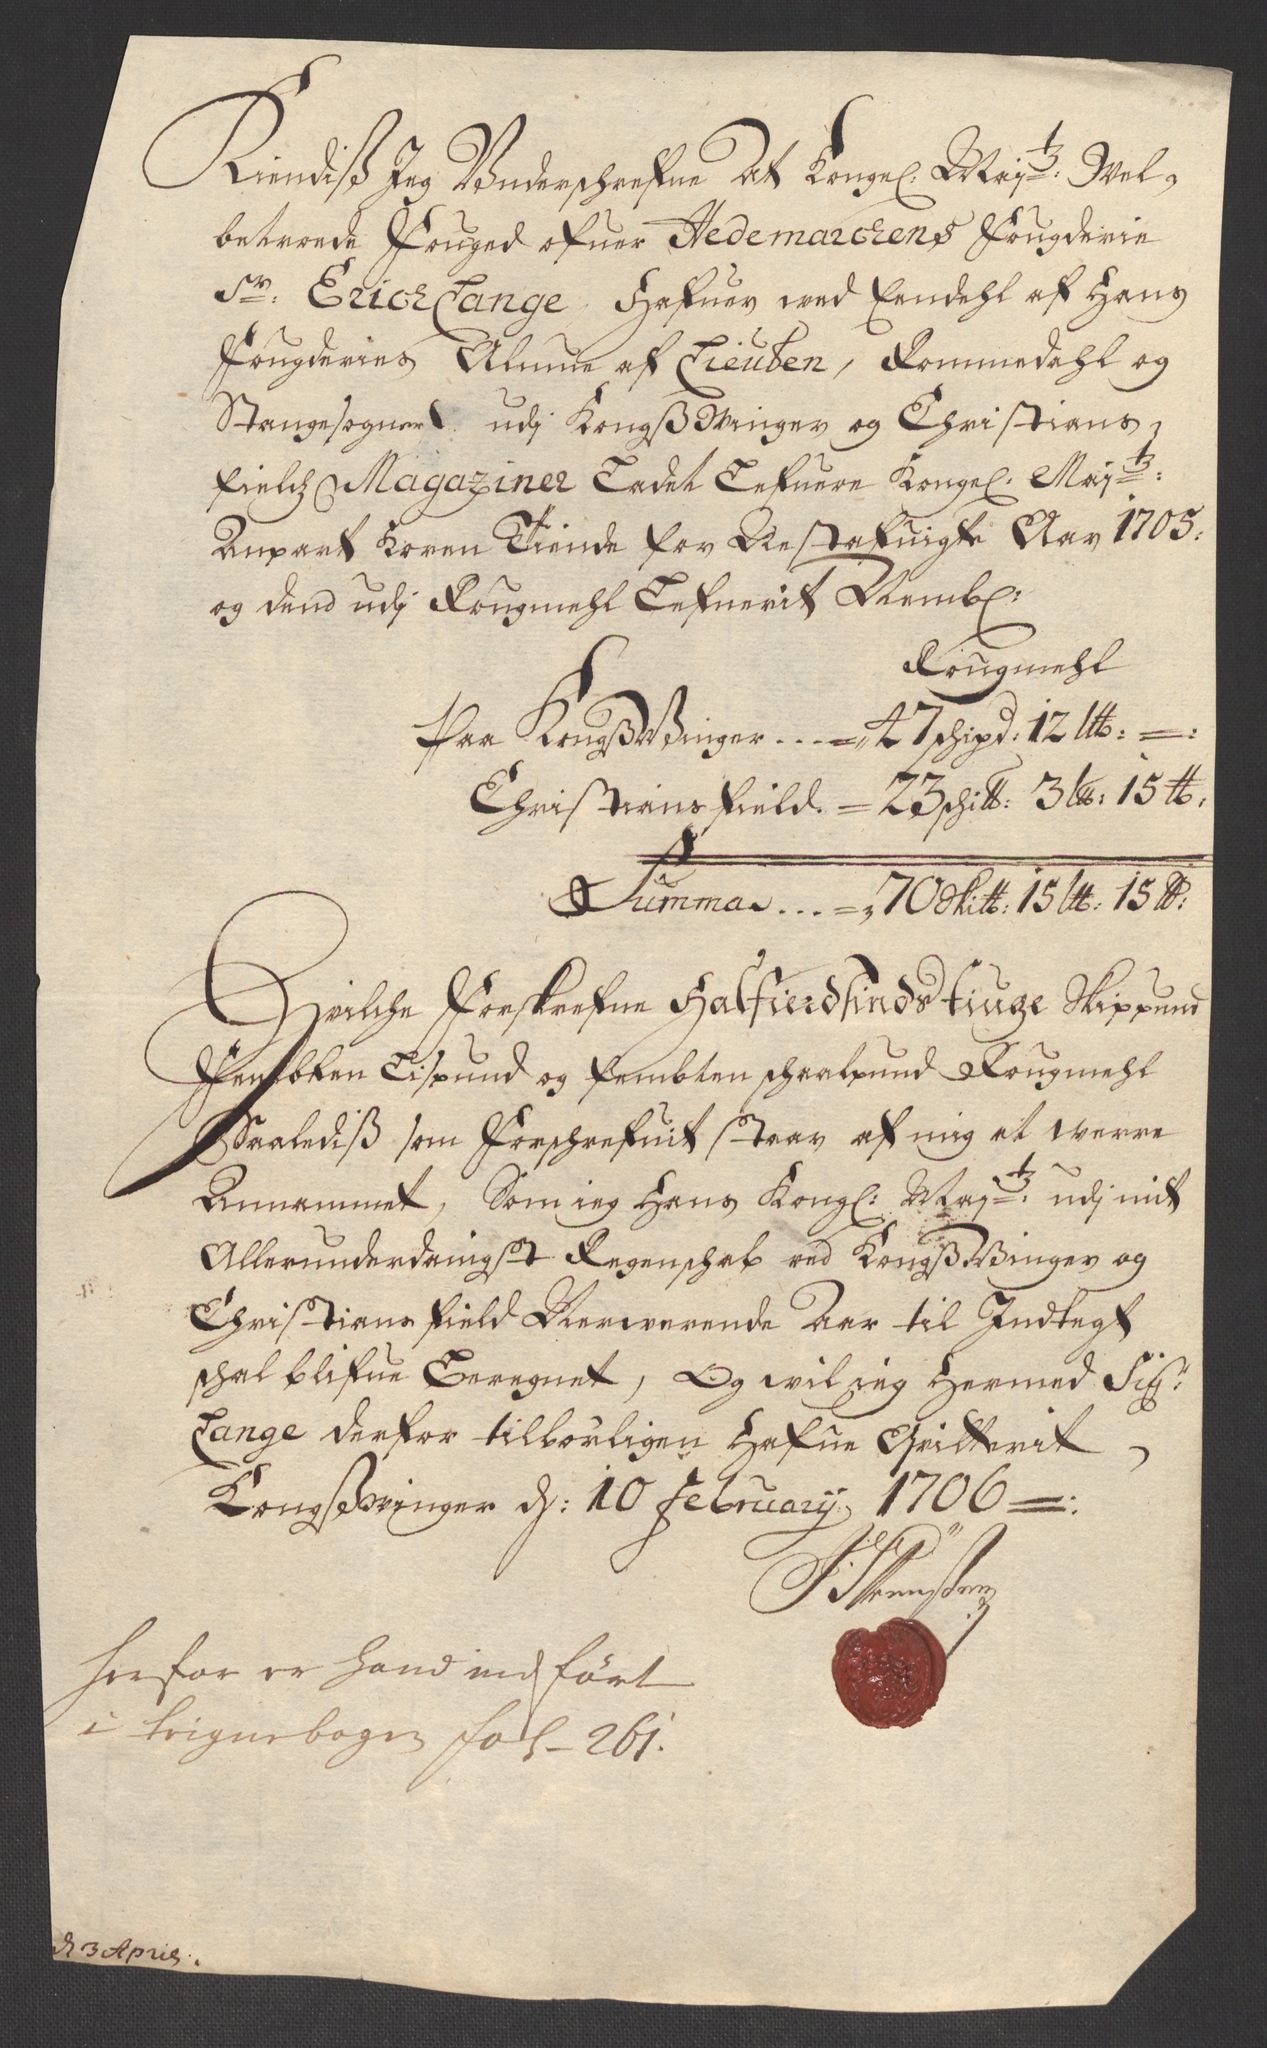 Kiendiß Jeg Underschrefne At Kongel. Maj:tz: Wel-
betroede Fouged ofuer Hedemarchens Fougderie
Sr: Erich Lange Hafuer med Eendehl af Hans
Fougderies Almue af Lieuten, Rommedahl og
Stangesogner udj KongßWinger og Christians-
fields Magaziner Ladet Lefuere Kongel. Maj:tz:
Anpart Koren Tiende for Nestafuigte Aar 1705:
og dend udj Rougmehl Lefuerit Nembl:
Rougmehl
Paa KongßWinger ... = 47 schipd: 12 l℔: =:
Christiansfield. = 23 schi℔: 3 l℔: 15 ℔:
Summa ... = 70 Ski℔: 15 l℔: 15 ℔:
Hvilche Forskrefne Halfierdsindstiuge Skippund
Fembten Lispund og fembten schaalpund Rougmehl
Saalediß som Forschrefuit staar af mig at werre
Annammet, Som ieg Hans Kongl: Maj:tz: udj mit
Allerunderdanigst Regenschab ved KongßWinger og
Christiansfield Nerwerende Aar til Indtegt
schal blifue Beregnet, Og wil ieg Hermed Sig:r
Lange derfor tilbørligen Hafue Qvitterit,
Kongßwinger d: 10 February 1706 =:
herfor er hand ind ført
i bogen fol- 261.
d 3 April.